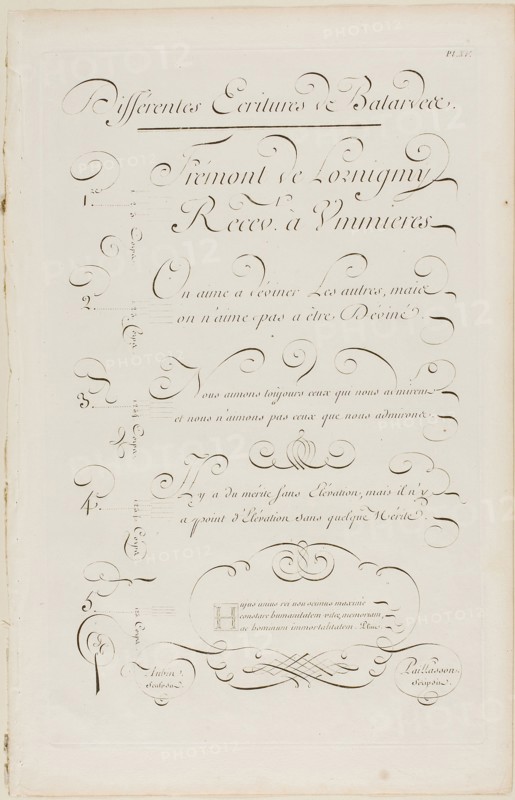 Pl. XI.
Différentes Ecritures de Batardes.
1.
Frémont de Lornigmy
Recev. à Vmmieres
2.
On aime a déviner Les autres, mais
on n'aime pas a être Déviné.
3.
Nous aimons toujours ceux qui nous admirent
et nous n'aimons pas ceux que nous admirons.
4.
Il y a du mérite sans Elévation, mais il n'y
a point d'Elévation sans quelque Mérite.
5.
Hujus unius rei non oremus maximè
constare humanitatem vitæ, memoriam,
ac hominum immortalitatem.
Aubin
Sculpsit
Paillasson
Scripsit.
PHOTO12